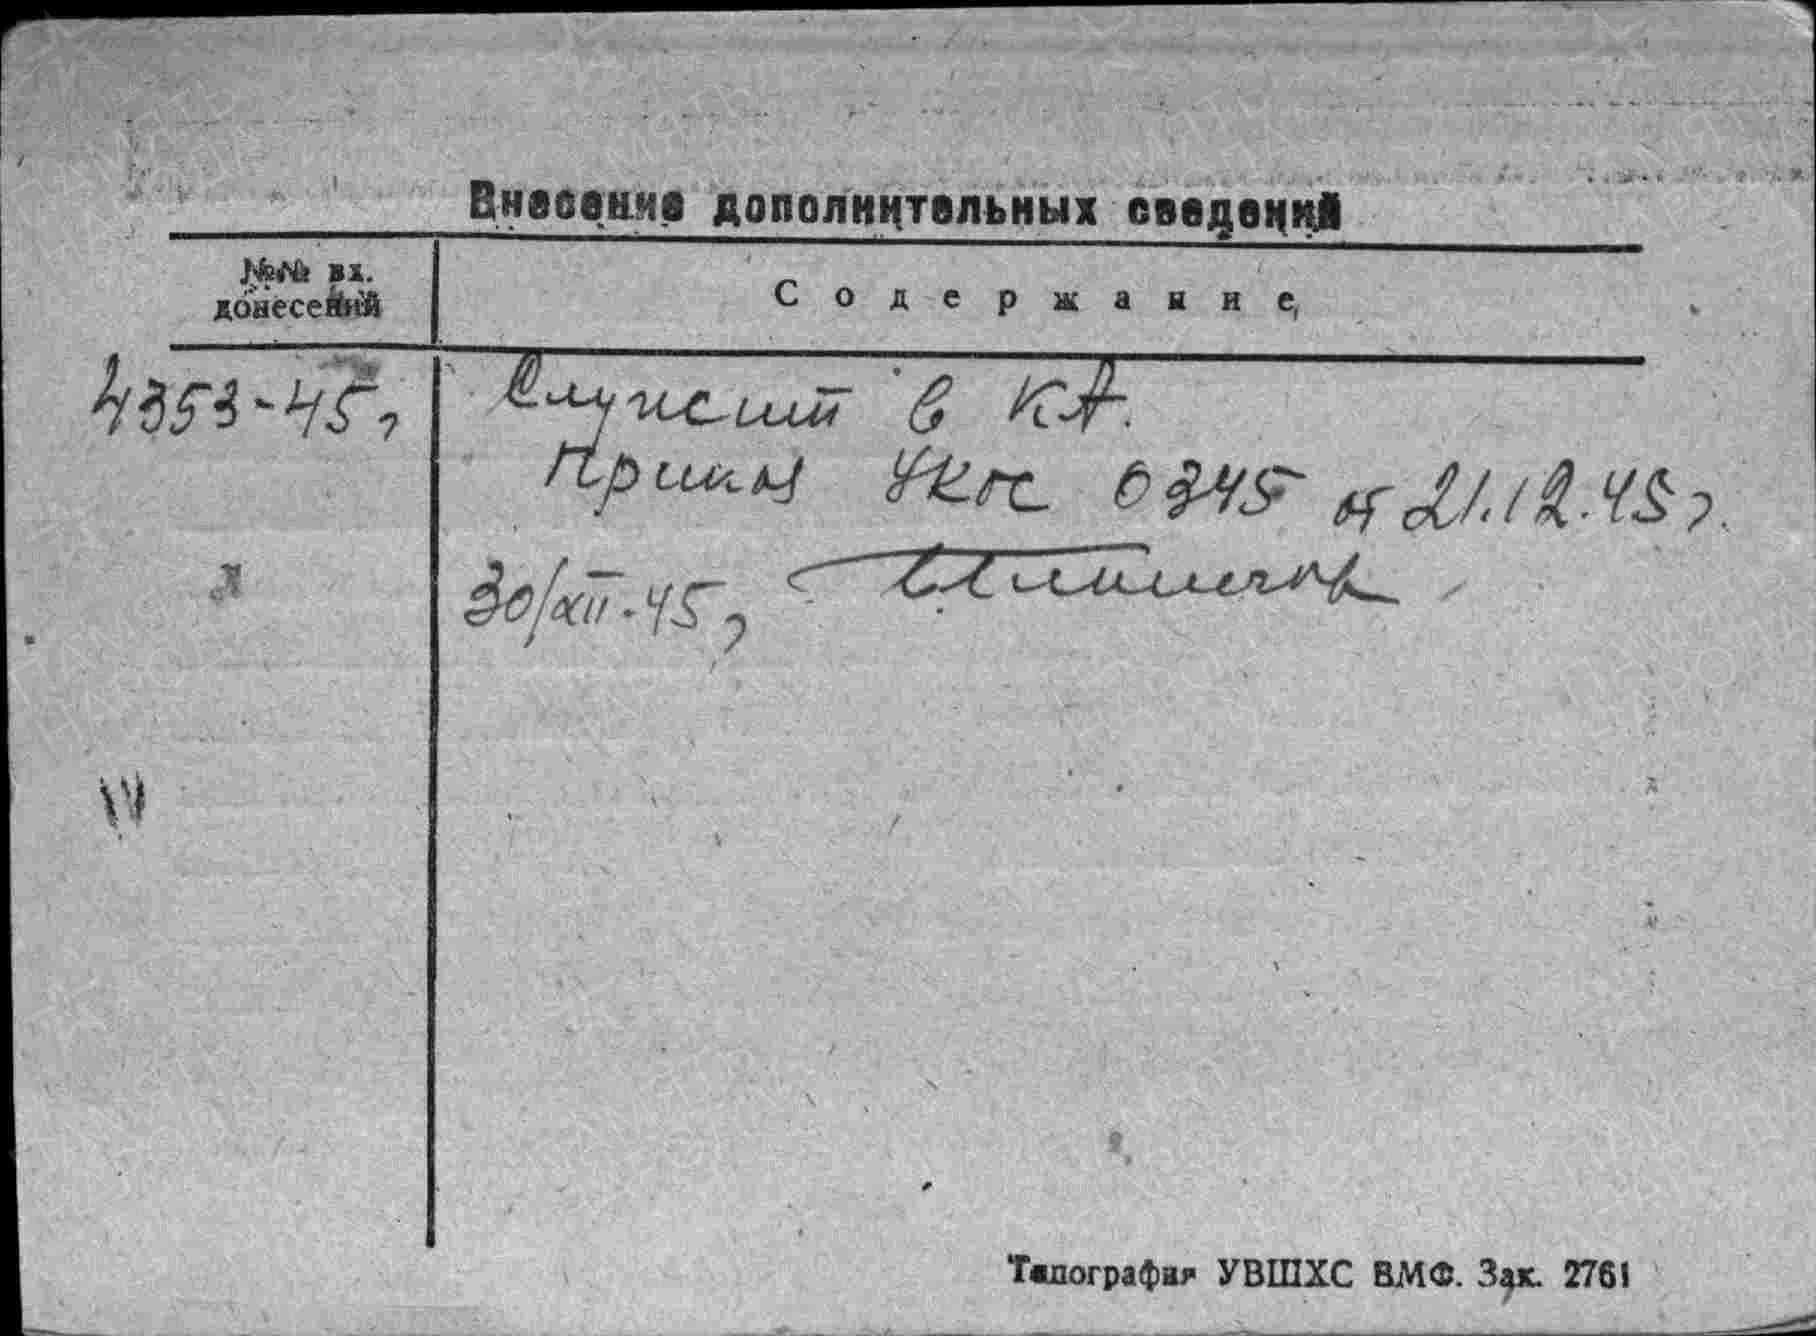 Внесение дополнительных сведений
№№ вх.
донесений
Содержание
4353-45г
Служит в КА.
Приказ УКОС 0345 от 21.12.45г.
30/XII-45г
Типография УВШХС ВМФ. Зак. 2761